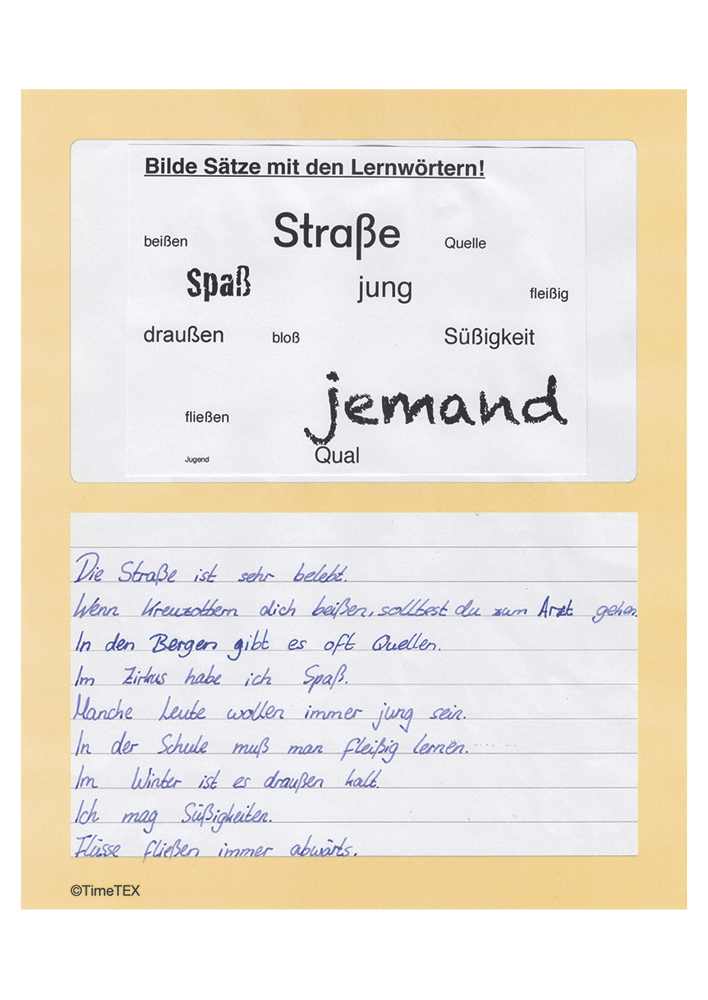 Bilde Sätze mit den Lernwörtern!
beißen Straße Quelle
Spaß jung fleißig
draußen bloß Süßigkeit
fließen jemand
Jugend Qual
Die Straße ist sehr belebt.
Wenn Kreuzottern dich beißen, solltest du zum Arzt gehen.
In den Bergen gibt es oft Quellen.
Im Zirkus habe ich Spaß.
Manche Leute wollen immer jung sein.
In der Schule muß man fleißig lernen.
Im Winter ist es draußen kalt.
Ich mag Süßigkeiten.
Flüsse fließen immer abwärts.
©TimeTEX